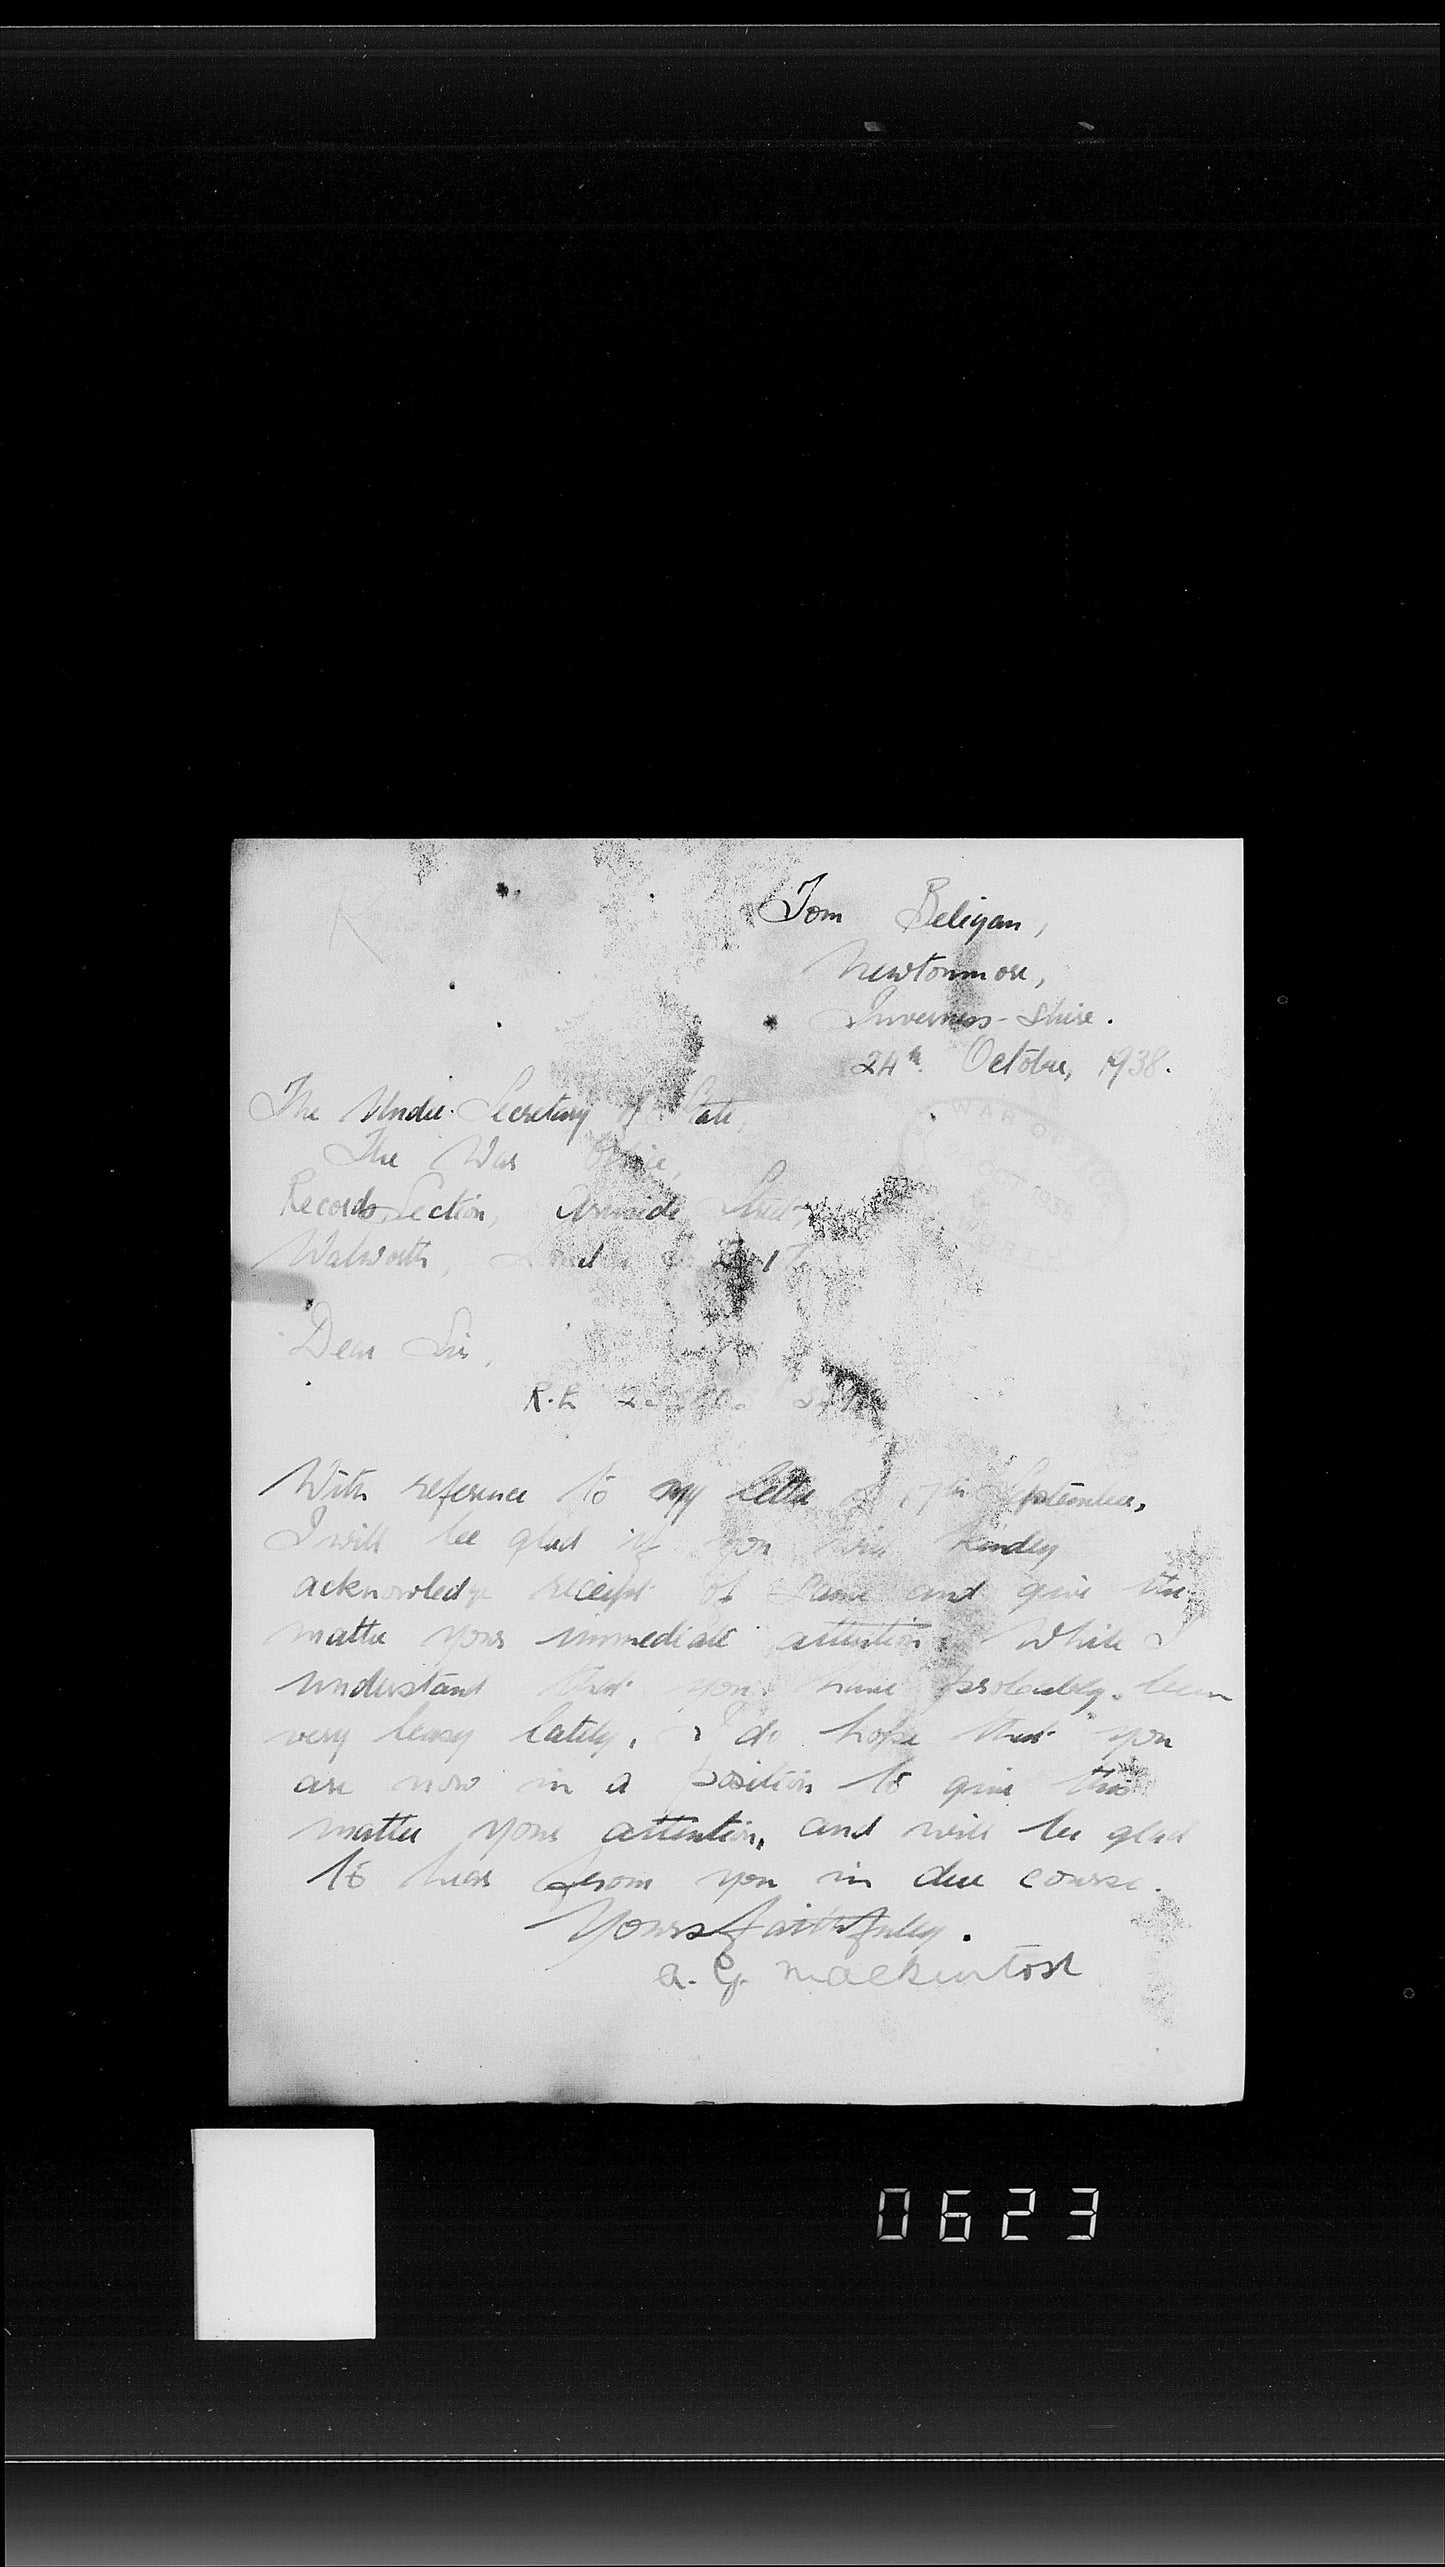 Tom Beligan,
Newtonmore,
Inverness-Shire.
24th. October, 1938.
The Under-Secretary of State,
The War Office,
Records Section, Arnside Street,
Walworth, London S.E. 17
WAR OFFICE
OCT 1938
Dear Sir,
R.L
With reference to my letter of 17th September,
I will be glad if you will kindly
acknowledge receipt of same and give the
matter your immediate attention. While I
understand that you have probably been
very busy lately, I do hope that you
are now in a position to give this
matter your attention, and will be glad
to hear from you in due course.
Yours faithfully.
A. G. Mackintosh
0623